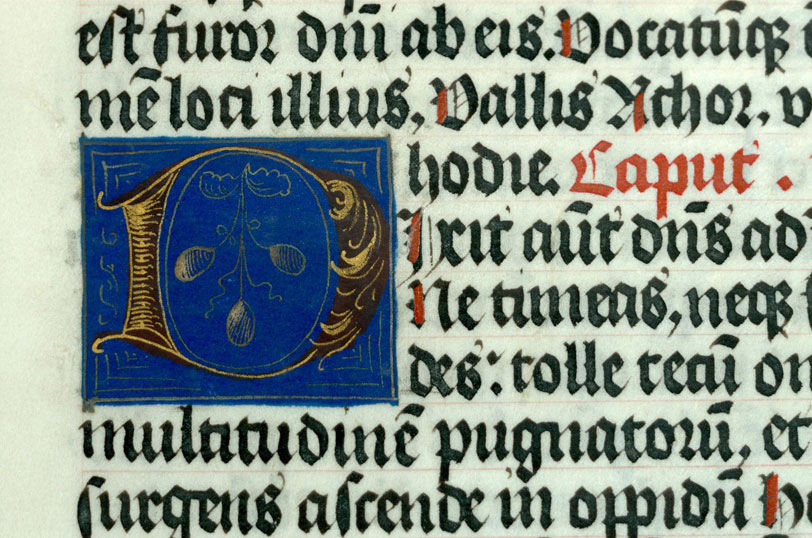 est furor dn̄i ab eis. Vocatūq̄
mē loci illius, Vallis Achor, v
hodie. Caput .
D Ixit aūt dn̄s ad
Ne timeas, neqȝ
des: tolle tecū om
multitudinē pugnatorū, et
surgens ascende in oppidū H
1546